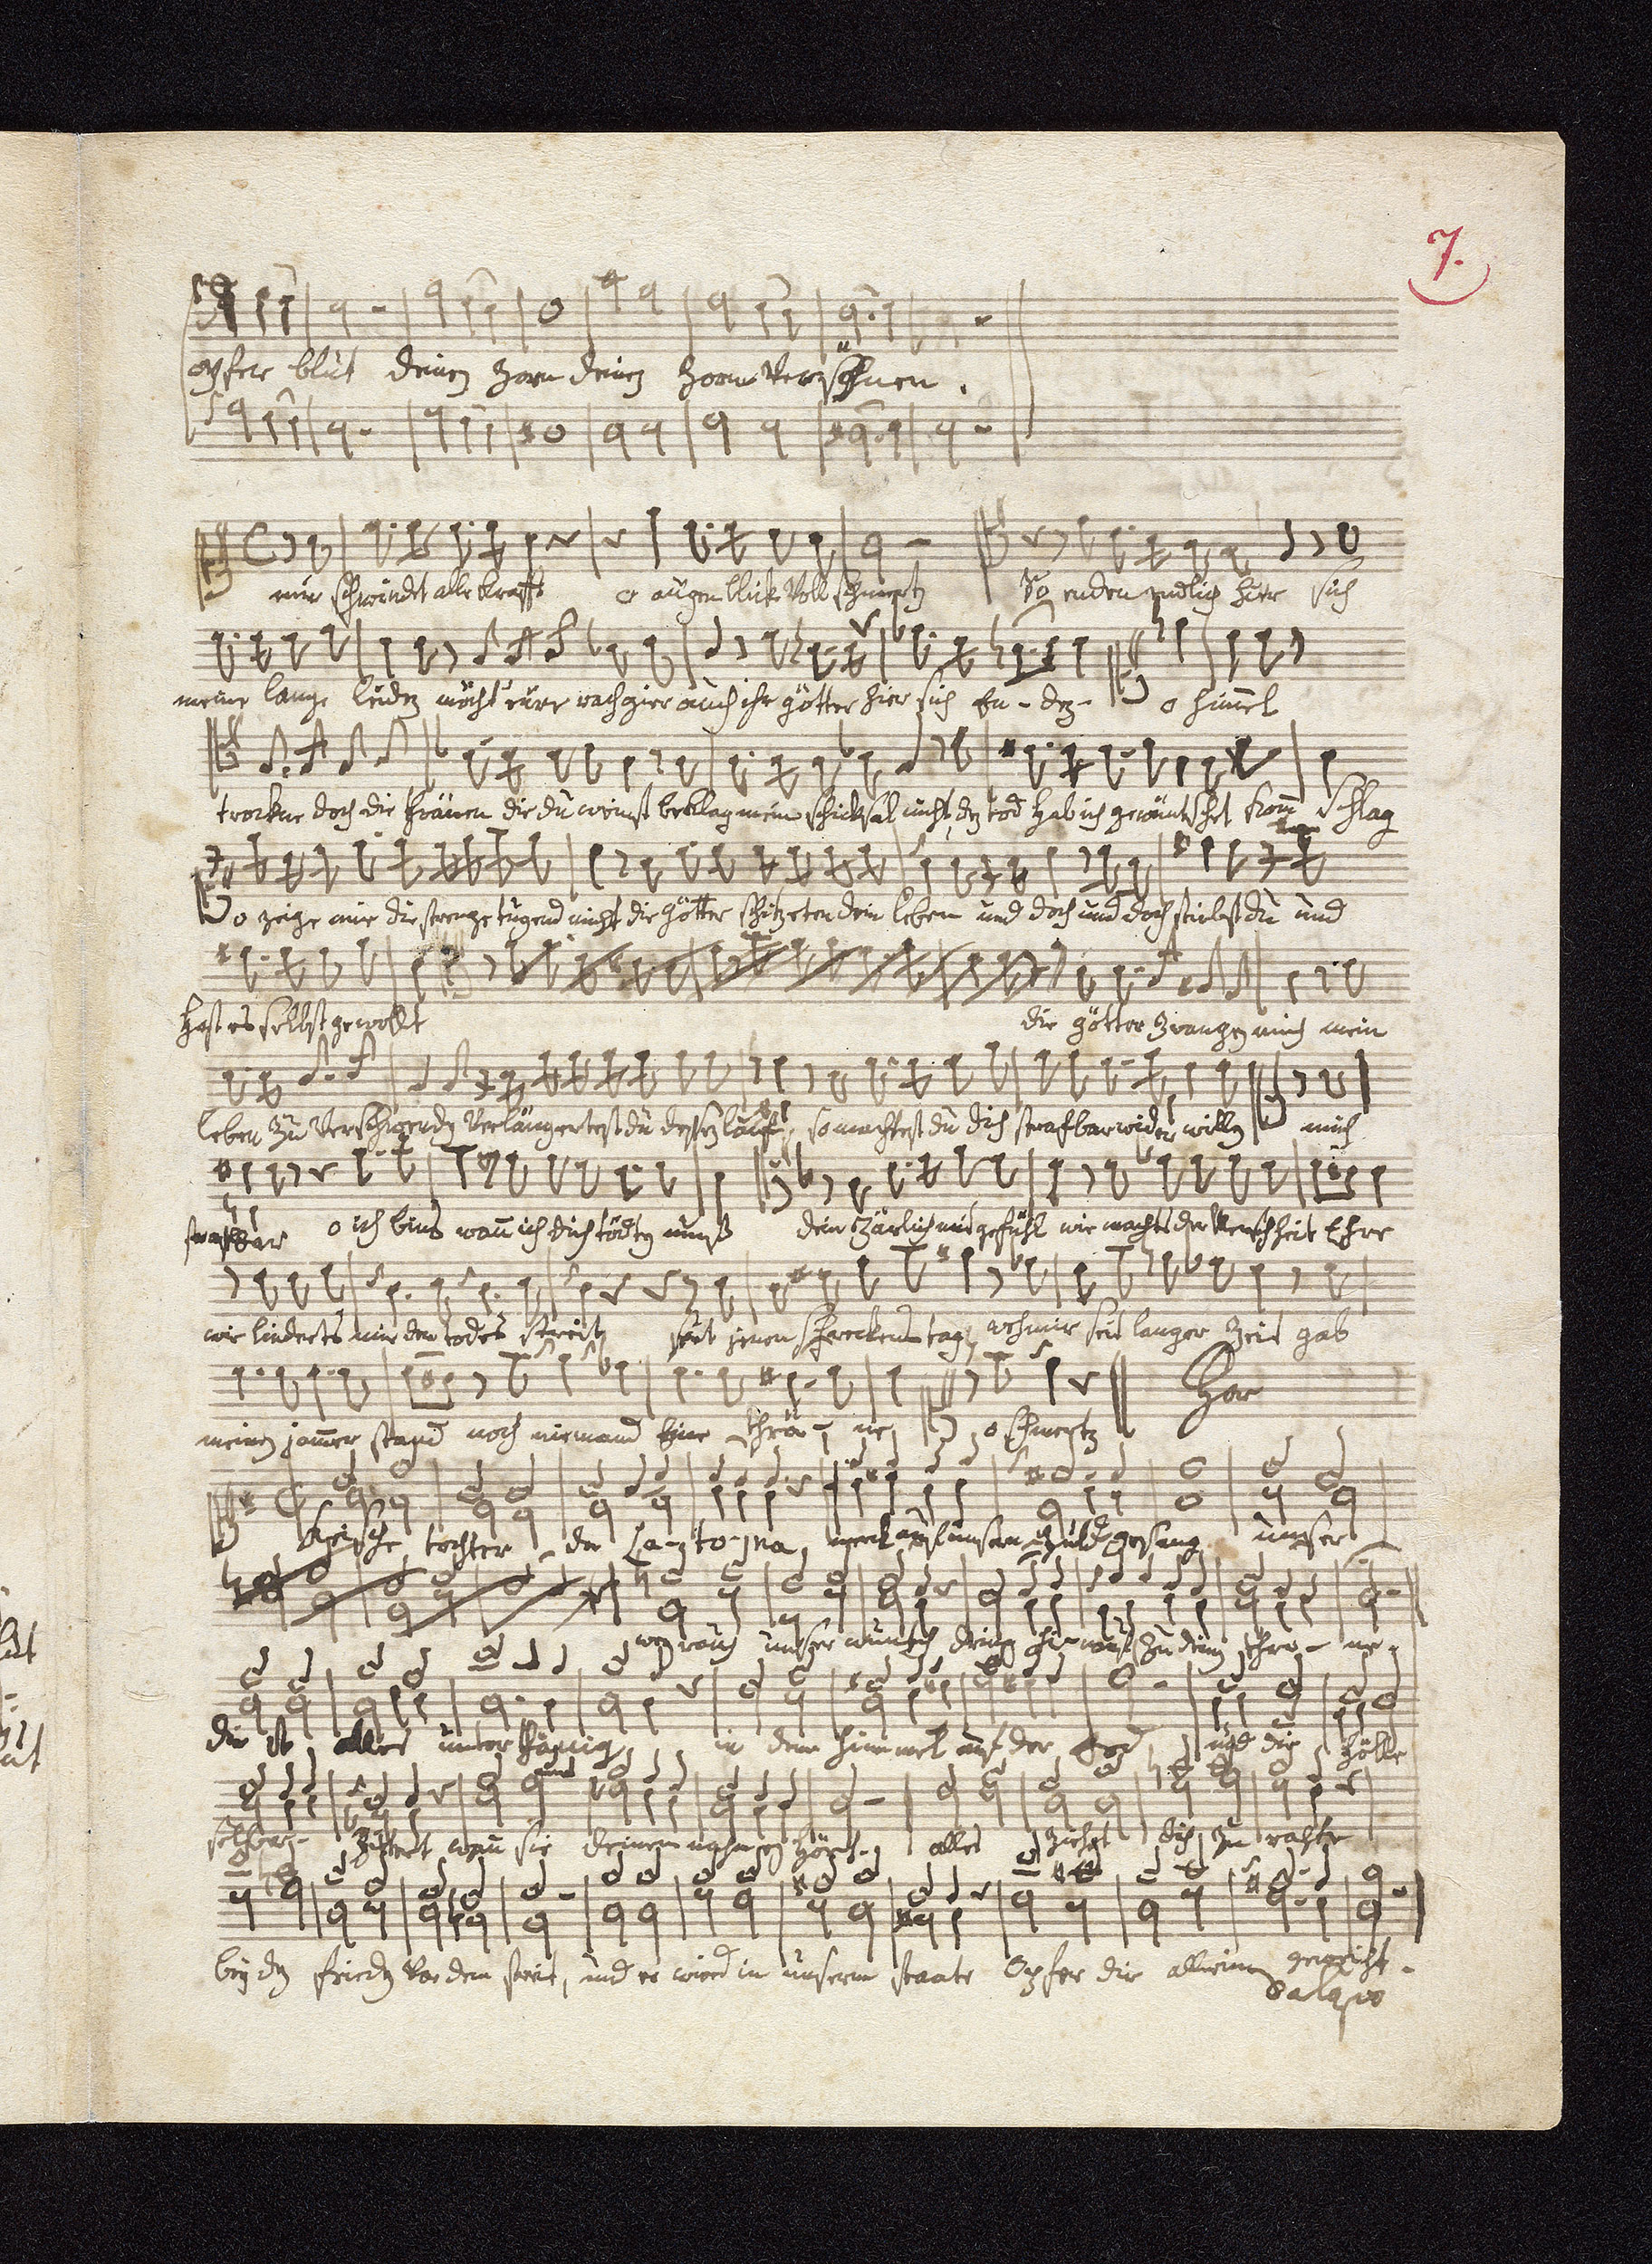 7.
opfer blut deinen Zorn deinen Zorn Versöhnen.
mir schwindet alle krafft o augenblick Voll schmertz So enden endlich hier sich
meine lange leiden möcht eure rachgier auch ihr götter hier sich En - den - o himel
trockne doch die thränen die du weinst beklag mein schicksal nicht, den tod hab ich gewüntschet kom schlag
o zeige mir die strenge tugend nicht die götter schützeten dein leben und doch und doch stirbst du und
hast es selbst gewollt die götter zwangen mich mein
leben zu Verschwenden Verlängertest du dessen lauf, so machtest du dich strafbar wider willen mich
strafbar o ich bins wan ich dich tödten muß dein zärlich mitgefühl wie machts der Menschheit Ehre
wie linderts mir den todes streit seit jenen schreckens tag, wo mir seit langer Zeit gab
meinen jamer stand noch niemand Eine thrä - ne o schmertz Chor
Keüsche tochter der La - to - na merk auf unsern huld gesang unser
weyrauch unser wuntsch dring hinauf zu deinen thro - ne -
dir ist alles unterthänig in dem himmel auf der Erd, und die hölle
selber - Zittert wan sie deinen nahmen hört - alles ziehst dich zu rathe
bey den frieden Vor dem streit, und es wird in unserm staate Opfer dir allein geweiht -
Dalsegno